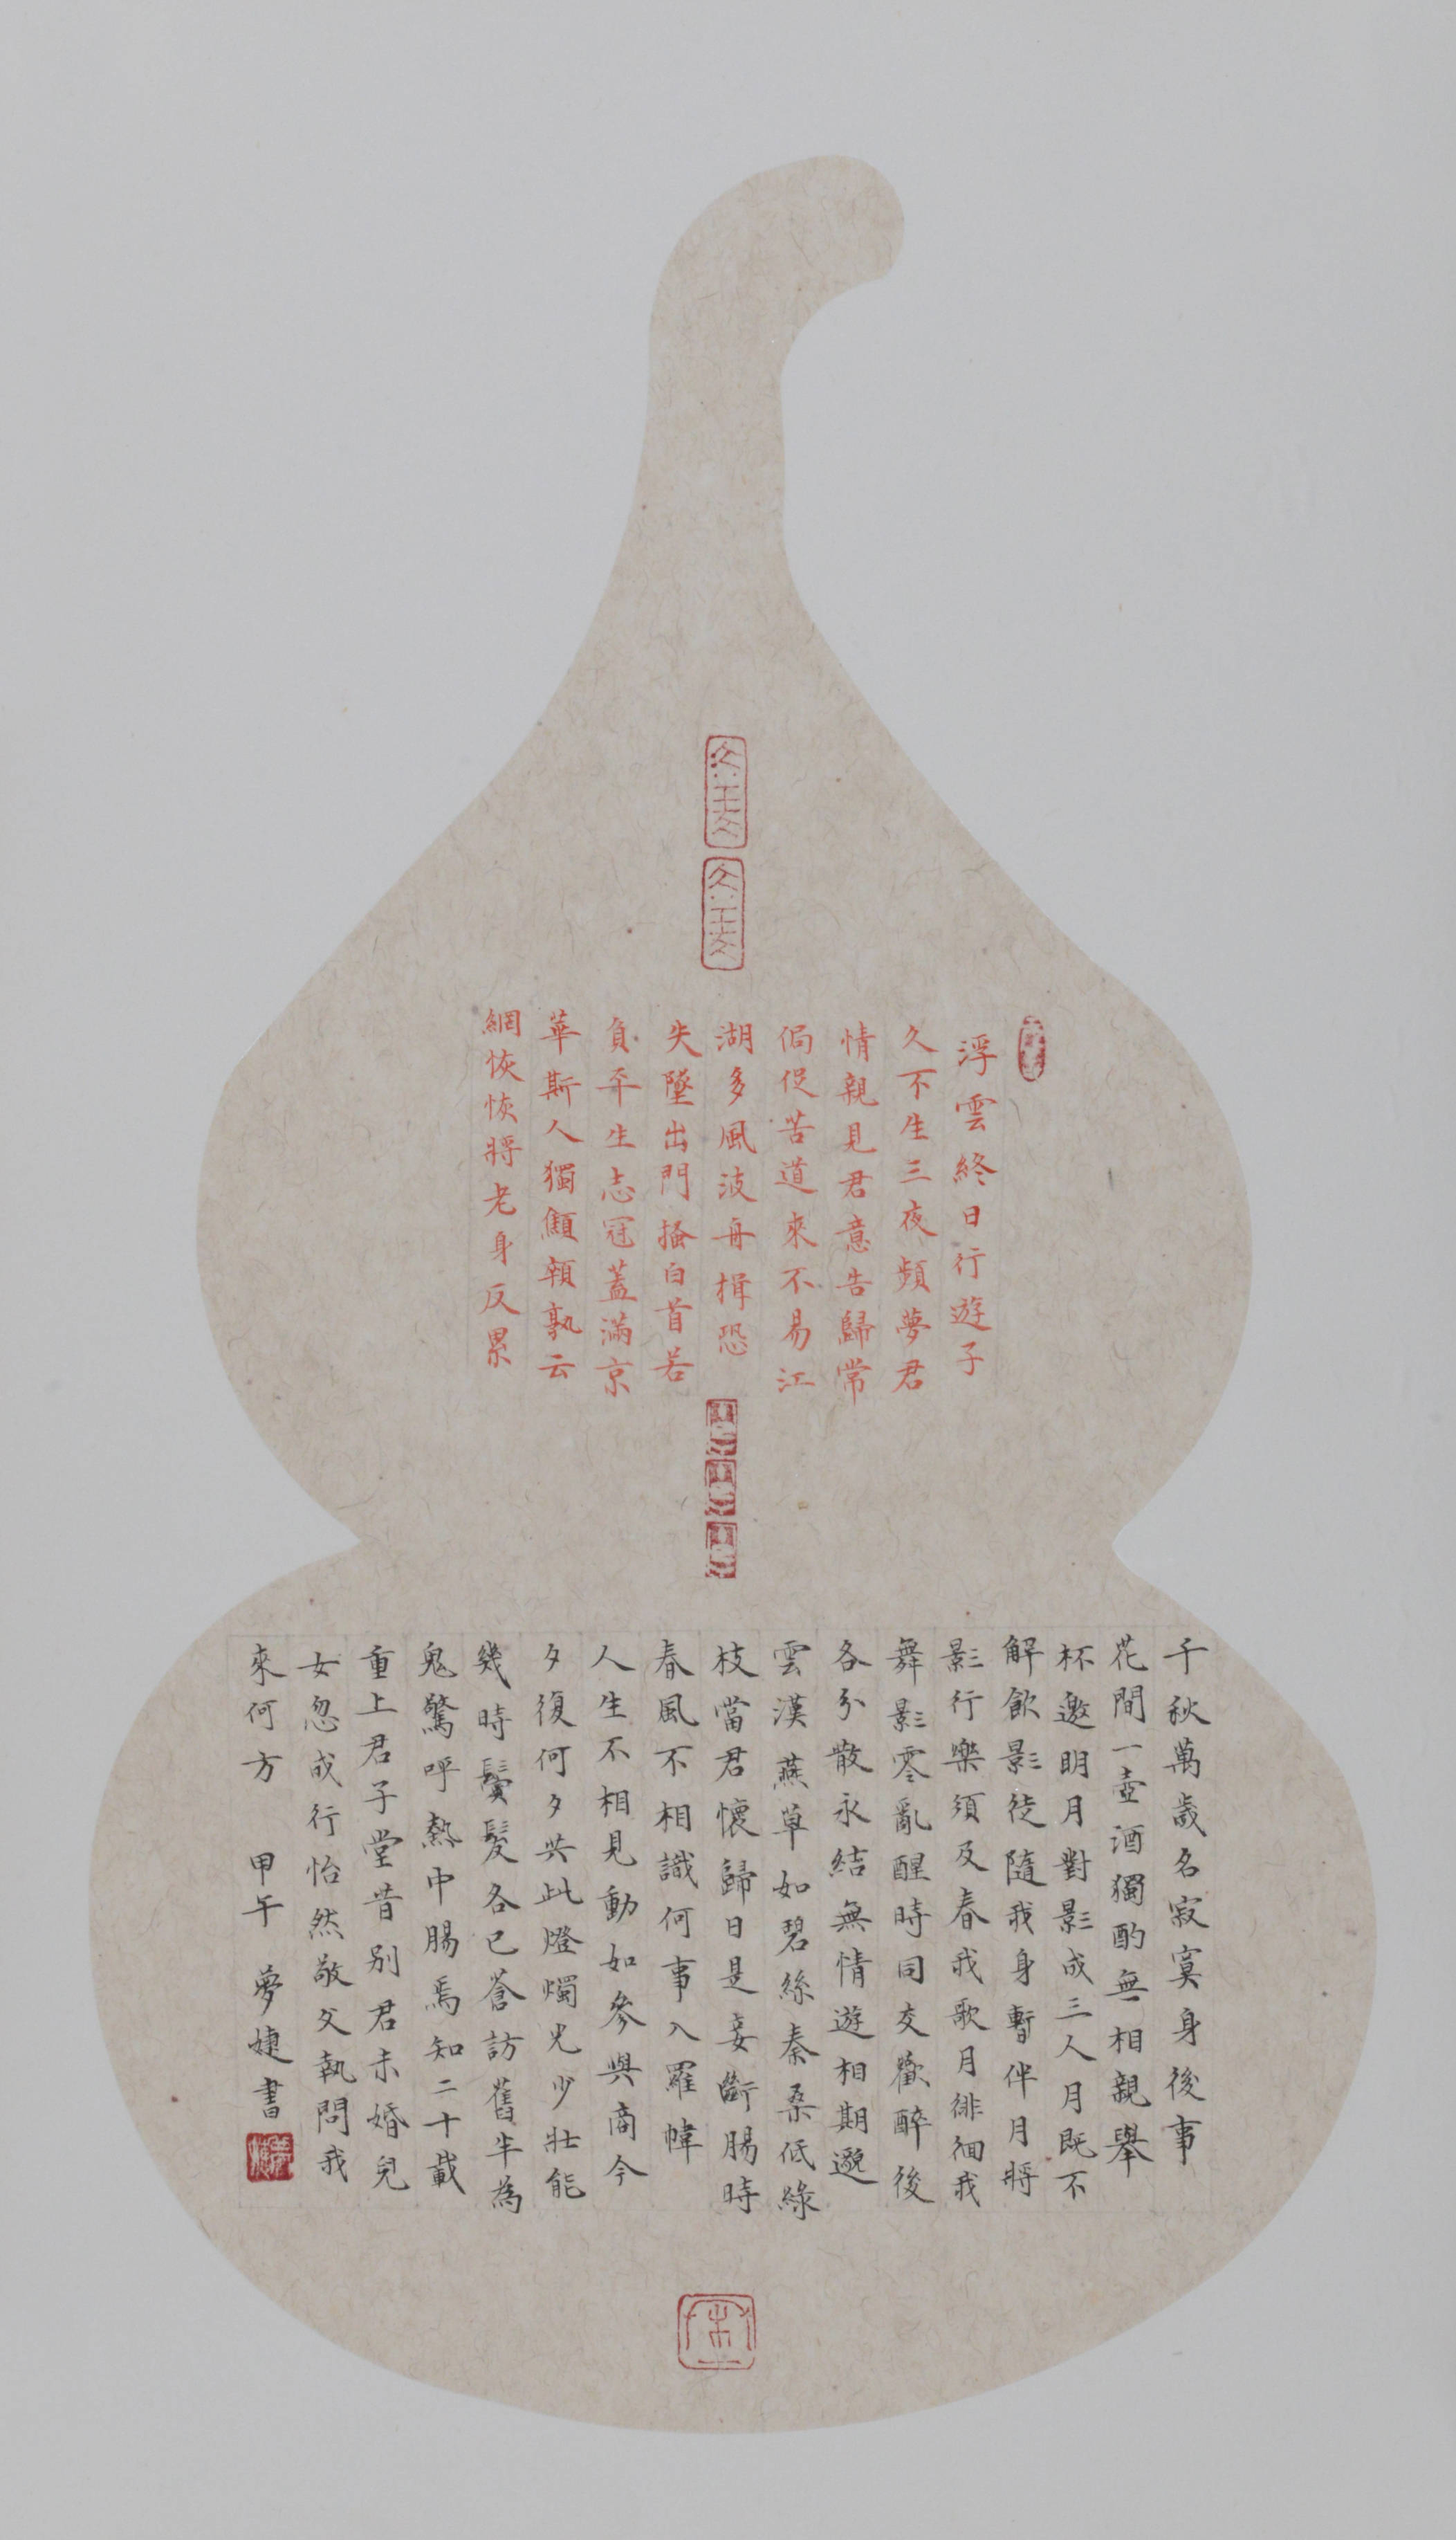 浮雲終日行遊子
久不生三夜頻夢君
情親見君意告歸常
侷促苦道來不易江
湖多風波舟楫恐
失墜出門搔白首若
負平生志冠蓋滿京
華斯人獨顦顇孰云
網恢恢將老身反累
千秋萬歲名寂寞身後事
花間一壺酒獨酌無相親舉
杯邀明月對影成三人月既不
解飲影徒隨我身暫伴月將
影行樂須及春我歌月徘徊我
舞影零亂醒時同交歡醉後
各分散永結無情遊相期邈
雲漢燕草如碧絲秦桑低綠
枝當君懷歸日是妾斷腸時
春風不相識何事入羅幃
人生不相見動如參與商今
夕復何夕共此燈燭光少壯能
幾時鬢髮各已蒼訪舊半為
鬼驚呼熱中腸焉知二十載
重上君子堂昔別君未婚兒
女忽成行怡然敬父執問我
來何方 甲午 夢婕書